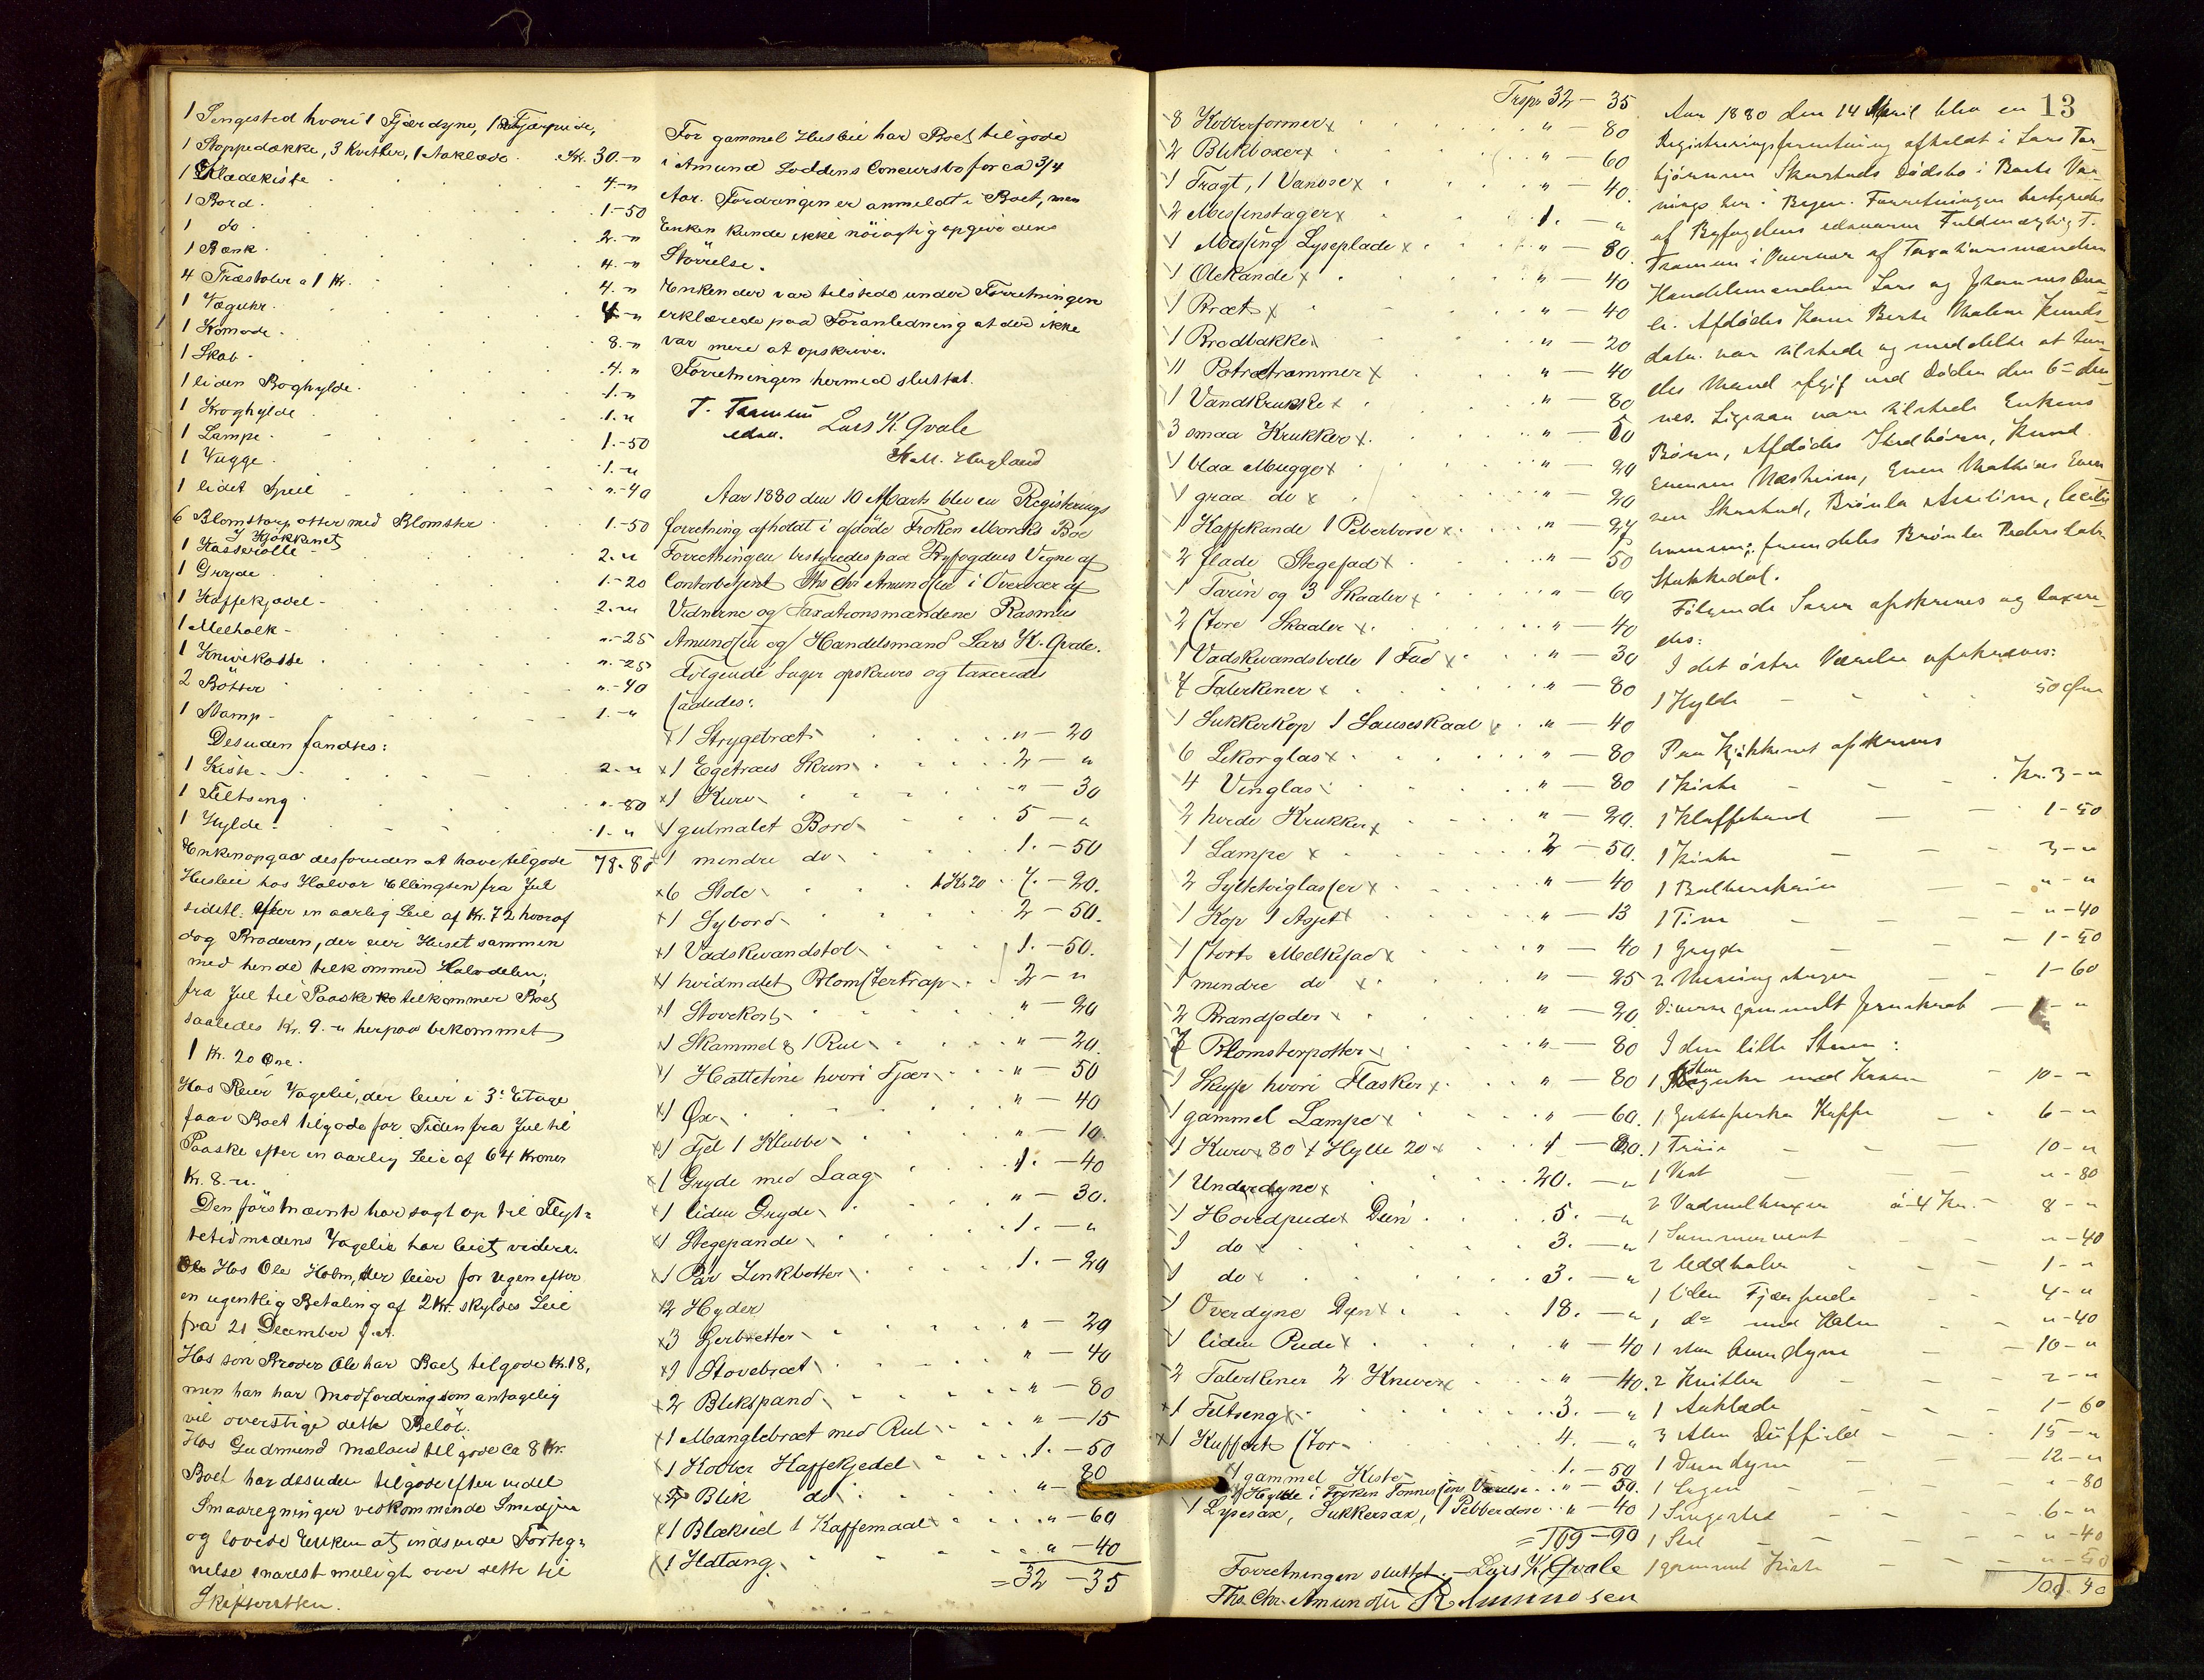 1 Sengested hvori 1 Fjærdyne, 1 Fjærpude,
1 Stoppedække, 3 Kvitler, 1 Aaklæde . Kr. 30.-"
1 Klædekiste 4.-"
1 Bord. 1.-50
1 do. 2.-"
1 Bænk. 4.-"
4 Træstoler a 1 Kr. 4.-"
1 Væguhr. 4-"
1 Komode. 8.-"
1 Skab. 4."
1 liden Boghylde. 1.-"
1 Kroghylde 1.-"
1 Lampe. 1.-50
1 Vugge. 1.-"
1 lidet Speil ".-40
6 Blomsterpotter med Blomster 1.-50
I Kjøkkenet
1 Kasserolle - 2."
1 Gryde. 1.-20
1 Kaffekjedel - 2.-"
1 Melholk - ".-25
1 Knivekasse ".-25
2 Bötter ".-40
1 Stamp - 1.-"
Desuden fandtes:
1 Kiste - 2.-"
1 Feltseng ".-80
1 Hylde. 1.-"
78.80
Enken opgav desforuden at have tilgode
Husleie hos Halvor Ellingsen fra Jul
sidstl. efter en aarlig Leie af Kr. 72 hvoraf
dog Broderen, der eier Huset sammen
med hende tilkommer Halvdelen;
fra Jul til Paaske tilkommer Boet
saaledes Kr. 9.-" herpaa bekommet
1 Kr. 20 Øre.
Hos Reier Vagelie, der leier i 3: Etage
faar Boet tilgode for Tiden fra Jul til
Paaske efter en aarlig Leie af 64 Kroner
Kr. 8.-".
Den förstnævnte har sagt op til Flyt=
tetid medens Vagelie har leiet videre.
Hos Ole Holm, der leier for Ugen efter
en ugentlig Betaling af 2 Kr. skyldes Leie
fra 21 December f. A.
Hos sön Broder Ole har Boet tilgode Kr. 18,
men han har Modfordring som antagelig
vil overstige dette Belöb.
Hos Gudmund Mæland tilgode ca 8 Kr.
Boet har desuden tilgode efter endel
Smaaregninger vedkommende Smedjen
og lovede Enken at indsende Forteg=
nelse snarest muligt over dette til
Skifteretten.
For gammel Husleie har Boet tilgode
i Amund Loddens Concursbo for ca 3/4
Aar. Fordringen er anmeldt i Boet, men
Enken kunde ikke nöiagtig opgive dens
Störrelse.
Enken der var tilstede under Forretningen
erklærede paa Foranledning at der ikke
var mere at opskrive.
Forretningen hermed sluttet.
T. Tarmuni
edsv. Lars K. Qvale
K. M. Hugland
Aar 1880 den 10 Marts blev en Registrerings
forretning afholdt i afdöde Fröken Morcks Bo
Forretningen bestyredes paa Byfogdens Vegne af
Contorbetjent Ths Chr Amundsen i Overvær af
Vidnerne og Taxationsmændene Rasmus
Amundsen og Handelsmand Lars K. Qvale.
Følgende Sager opskreves og taxeredes
saaledes:
1 Strygebræt " - 20
1 Egetræes Skrin 2 - "
1 Kurv " - 30
1 gulmalet Bord 5 - "
1 mindre do 1. - 50
6 Stole à Kr 1,20 7. - 20.
1 Sybord 2 - 50.
1 Vadskevandstol 1. - 50.
1 hvidmalet Blomstertrap 2 - "
1 Stovekost " - 20
1 Skammel & 1 Rul " - 20.
1 Hattetine hvori Fjær " - 50
1 Øx " - 40
1 Fjel 1 Klubbe " - 10.
1 Gryde med Laag 1. - 40
1 liden Gryde " - 30.
1 Stegepande 1. - "
1 Par Zinkbøtter 1. - 20
2 Hyder
3 Gerbretter " - 20
1 Stovebræt " - 40
2 Blikspand " - 80
1 Manglebræt med Rul " - 15
1 Kobber Kaffekjedel 1. - 50
2 Blik do " - 80
1 Blæksied 1 Kaffemaal " - 60
1 Ildtang " - 40
= 32 - 35
Trspr 32 - 35
8 Kobberformer " - 80
2 Blikboxer " - 60
1 Tragt, 1 Vandøse " - 40
2 Messinstager 1. - "
1 Messing Lyseplade " - 80
1 Olekande " - 40
1 Bræt " - 40
1 Brødbakke " - 20
11 Potrætrammer " - 40
1 Vandkrukke " - 80
3 smaa Krukker " - 50
1 blaa Mugge " - 20
1 graa do " - 20
1 Kaffekande 1 Peberbøsse " - 25
2 flade Stegefad " - 50
1 Tarin og 3 Skaaler " - 60
2 store Skaaler " - 40
1 Vadskevandsbolle 1 Fad " - 30
7 Talerkener " - 80
1 Sukkerkop 1 Sauseskaal " - 40
6 Likørglas " - 80
4 Vinglas " - 80
2 hvide Krukker " - 20.
1 Lampe 2 - 50.
2 Syltetøiglasser " - 40
1 Kop 1 Asjet " - 13
1 stort Melkefad " - 40
1 mindre do " - 25
2 Brandspder " - 20
7 Blomsterpotter " - 80
1 Skuffe hvori Flasker " - 80
1 gammel Lampe " - 60.
1 Kurv 80 1 Hylle 20
1 Underdyne 20. - "
1 Hovedpude Dun 5. - "
1 do 3. - "
1 do 3. - "
1 Overdyne Dun 18. - "
1 liden Pude " - 40
2 Talerkener 2 Kniver " - 40.
1 Feltseng 3. - "
1 Kuffert stor 4. - "
1 gammel Kiste 1. - 50
1 Hylde i Frøken Tønnessens Værelse " - 50.
1 Lysesax, Sukkersax, 1 Pebberdose " - 40
= 109 - 90
Forretningen sluttet. - Lars K. Qvale
Ths. Chr. Amundsen R Amundsen
13
Aar 1880 den 14 April blev en
Registreringsforretning afholdt i Lars Tor-
björnsen Skarstads Dödsbo i Boets Væ-
relse her i Byen. Forretningen bestyredes
af Byfogdens edsvorne Fuldmægtig T.
i Overvær af Taxationsmændene
Handelsmændene Lars og Johannes Qva-
le. Afdödes Kone Berte Malene Knuds-
datr. var tilstede og meddelte at hen-
des Mand afgik ved Döden den 6= den-
nes. Ligesaa vare tilstede Enkens
Börn, Afdödes Stedbörn, Knud
Evensen Næsheim, Even Mathias Even-
sen Skarstad,
fremdeles
Stakkedal.
Fölgende Sager opskreves og taxere-
des:
I det östre Værelse opskreves:
1 Hylde 50 Øre
Paa Kjökkenet opskreves
1 Kiste Kr. 3 - "
1 Klaffebord 1 - 50
1 Kiste 3 - "
1 " - "
1 Tine " - 40
1 Gryde 1 - 50
2 Messingstager 1 - 60
Diverse gammelt Jernskrab 1 - "
I den lille Stue:
1 med Kasse 10 - "
1 Guttaperka Kappe 6 - "
1 Tröie 10 - "
1 Vest " - 80
2 Vadmelsbuxer à 4 Kr. 8 - "
1 Sommervest " - 40
2 Uldhaler 1 - "
1 liden Fjærpude 4 - "
1 do med Halm " - 40
1 stor Dundyne 10 - "
2 Kvitler 2 - "
1 Aaklæde 1 - 60
3 Alen Düffield 15 - "
1 Dundyne 12 - "
1 Lagen " - 80
1 Sengested 6 - "
1 Stol " - 40
1 gammel Kiste " - 50
101. 40